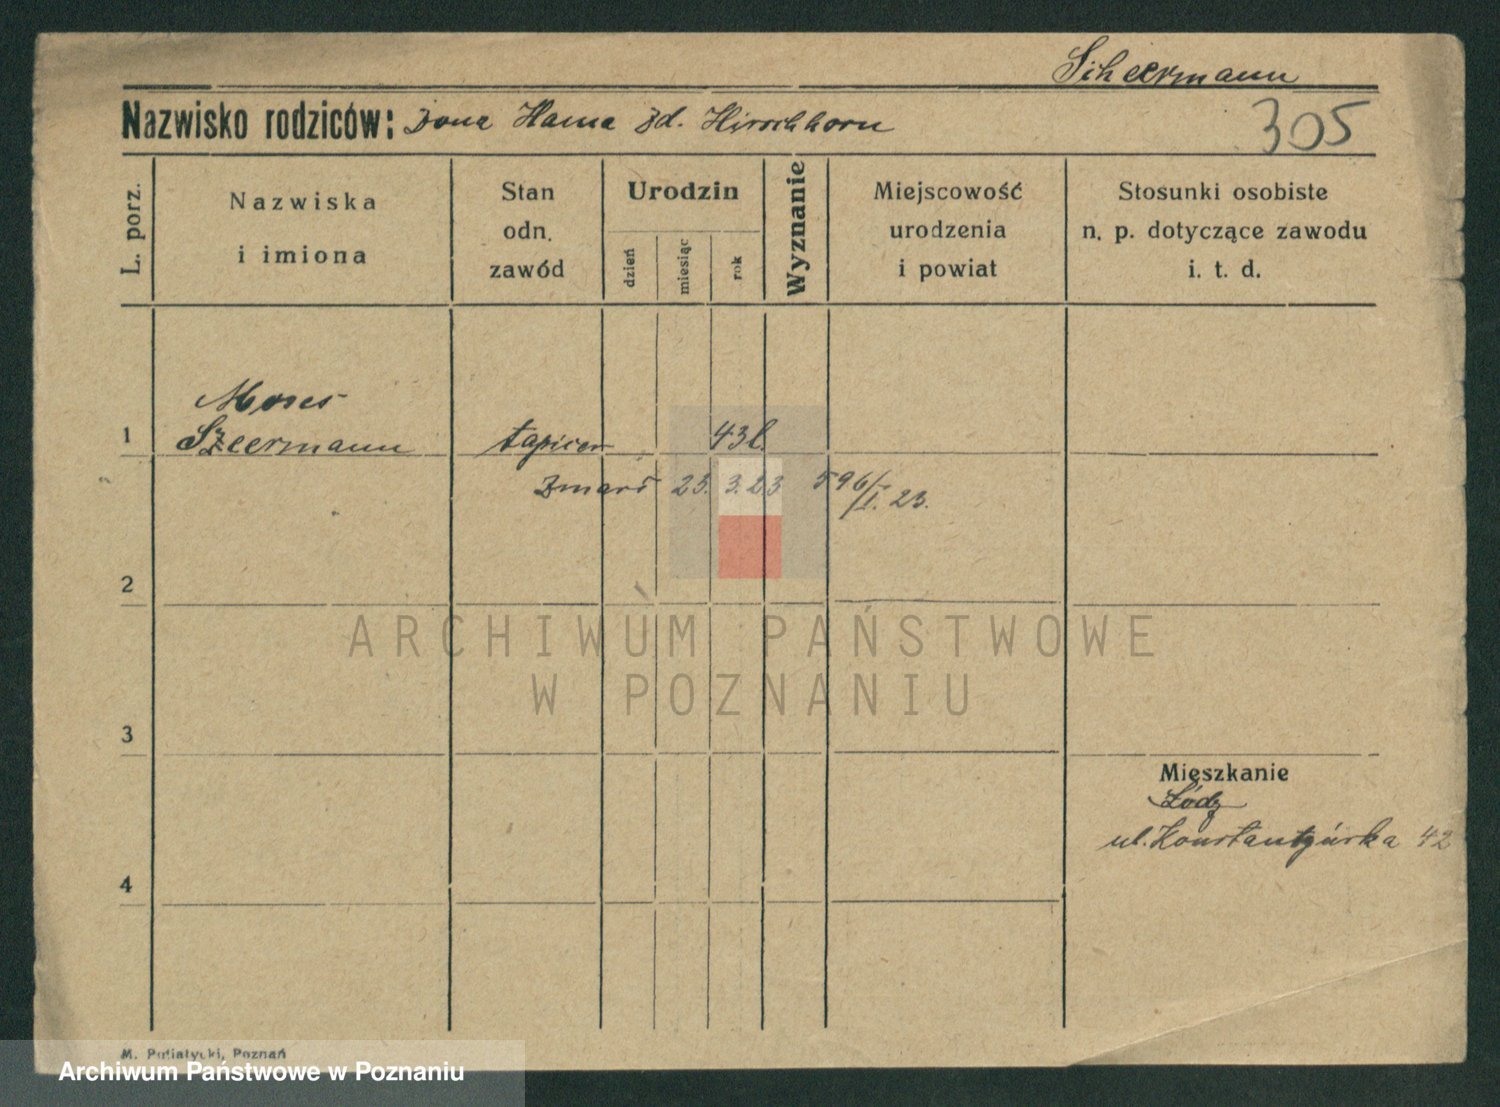 Scheermann
305
Nazwisko rodziców: żona Hanna zd. Hirschhorn
L. porz.
Nazwiska
i imiona
Stan
odn.
zawód
Urodzin
dzień
miesiąc
rok
Wyznanie
Miejscowość
urodzenia
i powiat
Stosunki osobiste
n. p. dotyczące zawodu
i. t. d.
Moses
1 Szeermann tapicer 43 l.
zmarł 23. 3. 23 596/I. 23.
2
3
4
Mieszkanie
Łódz
ul. Konstantyńska 42
M. Putiatycki, Poznań
ARCHIWUM PAŃSTWOWE
W POZNANIU
Archiwum Państwowe w Poznaniu